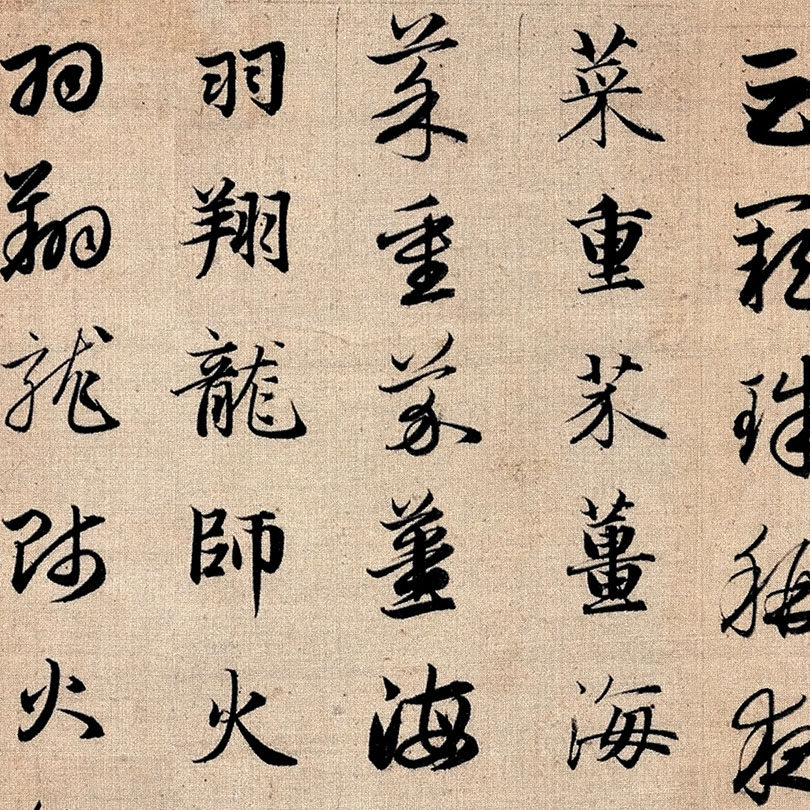 巨闕珠稱夜
菜重芥薑海
菜重芥薑海
羽翔龍師火
羽翔龍師火